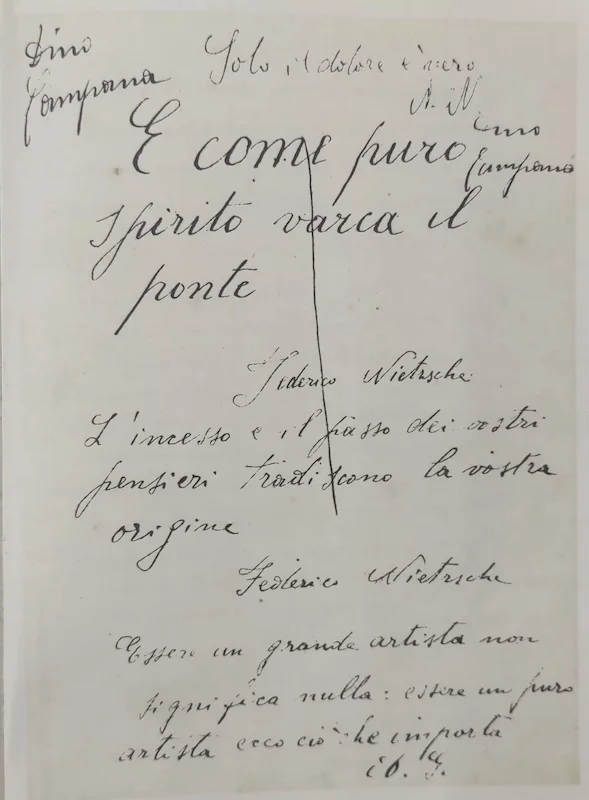 Dino
Campana
Solo il dolore è vero
A. N.
Dino
Campana
E come puro
spirito varca il
ponte
Federico Nietzsche
L'incesso e il passo dei vostri
pensieri tradiscono la vostra
origine
Federico Nietzsche
Essere un grande artista non
significa nulla: essere un puro
artista ecco ciò che importa